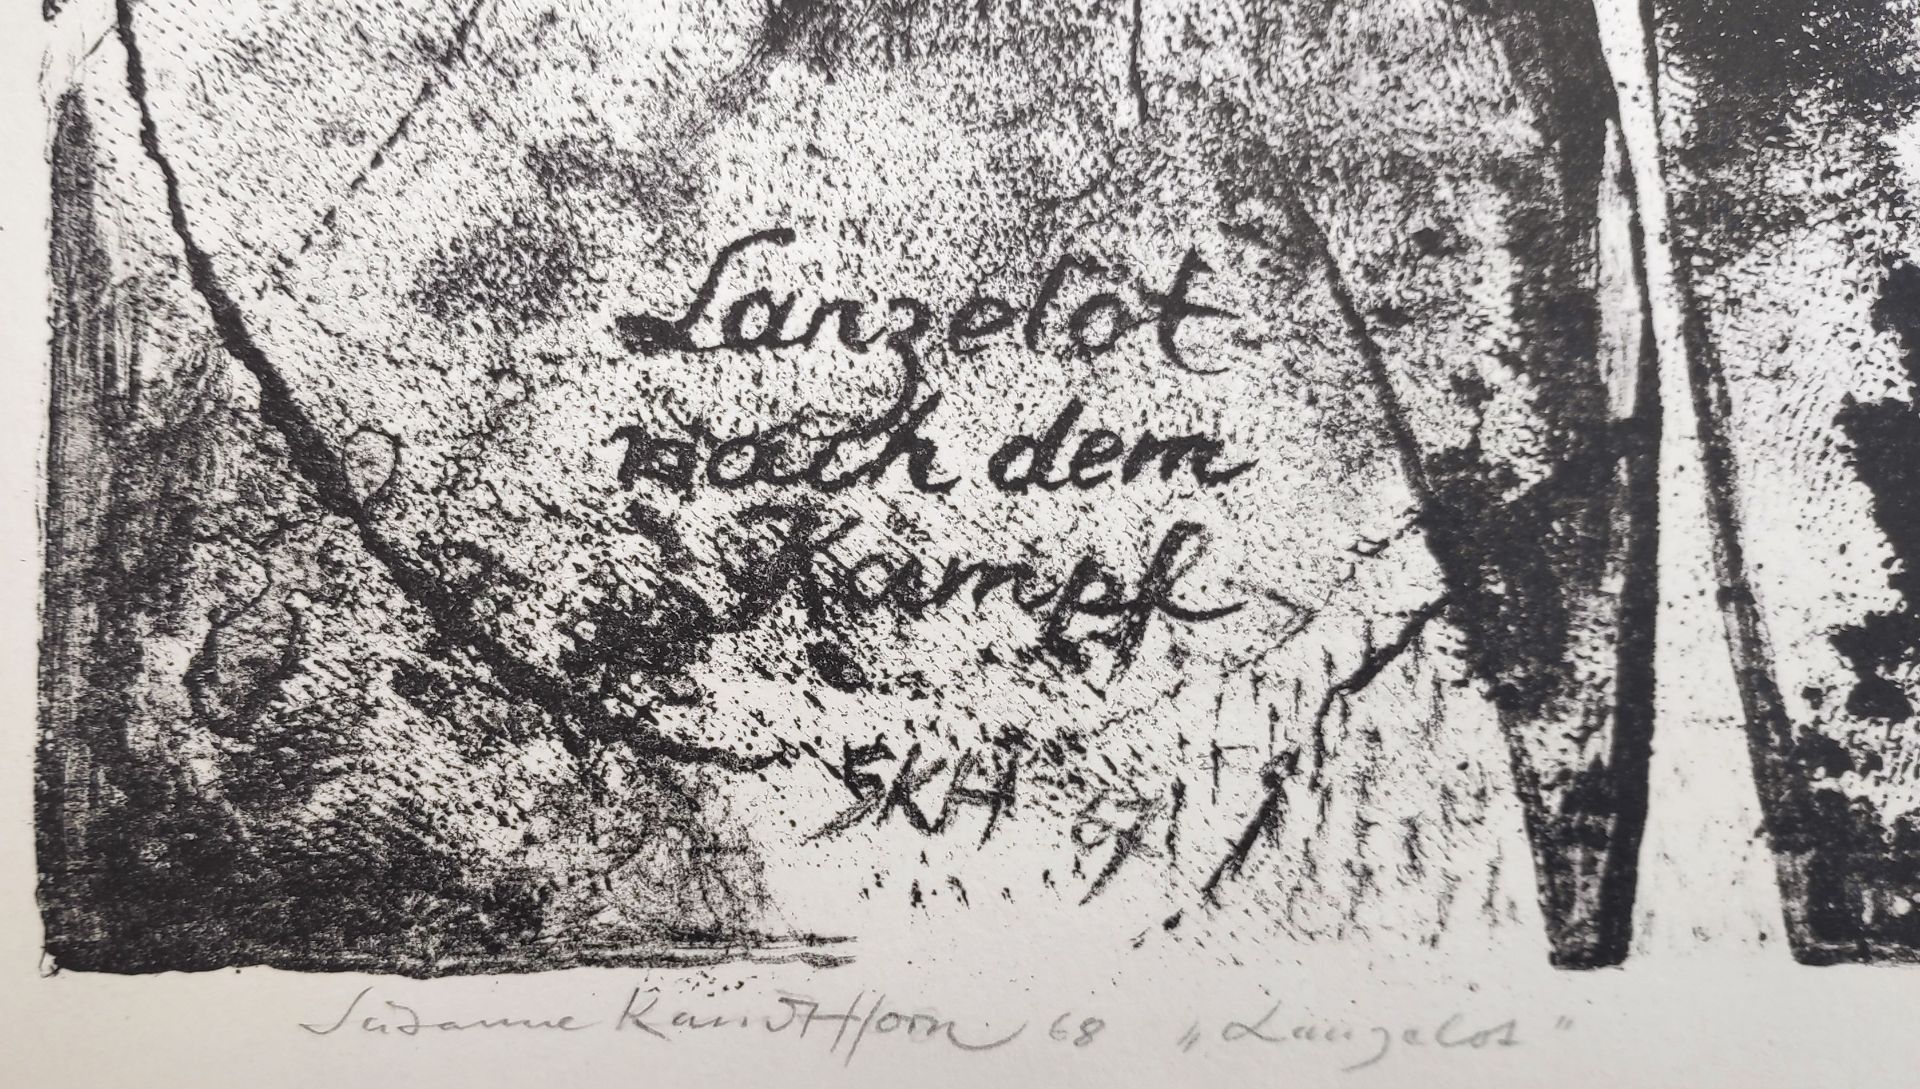 Lanzelot
nach dem
Kampf
SKH 67
Susanne Kandt-Horn 68 „Lanzelot"